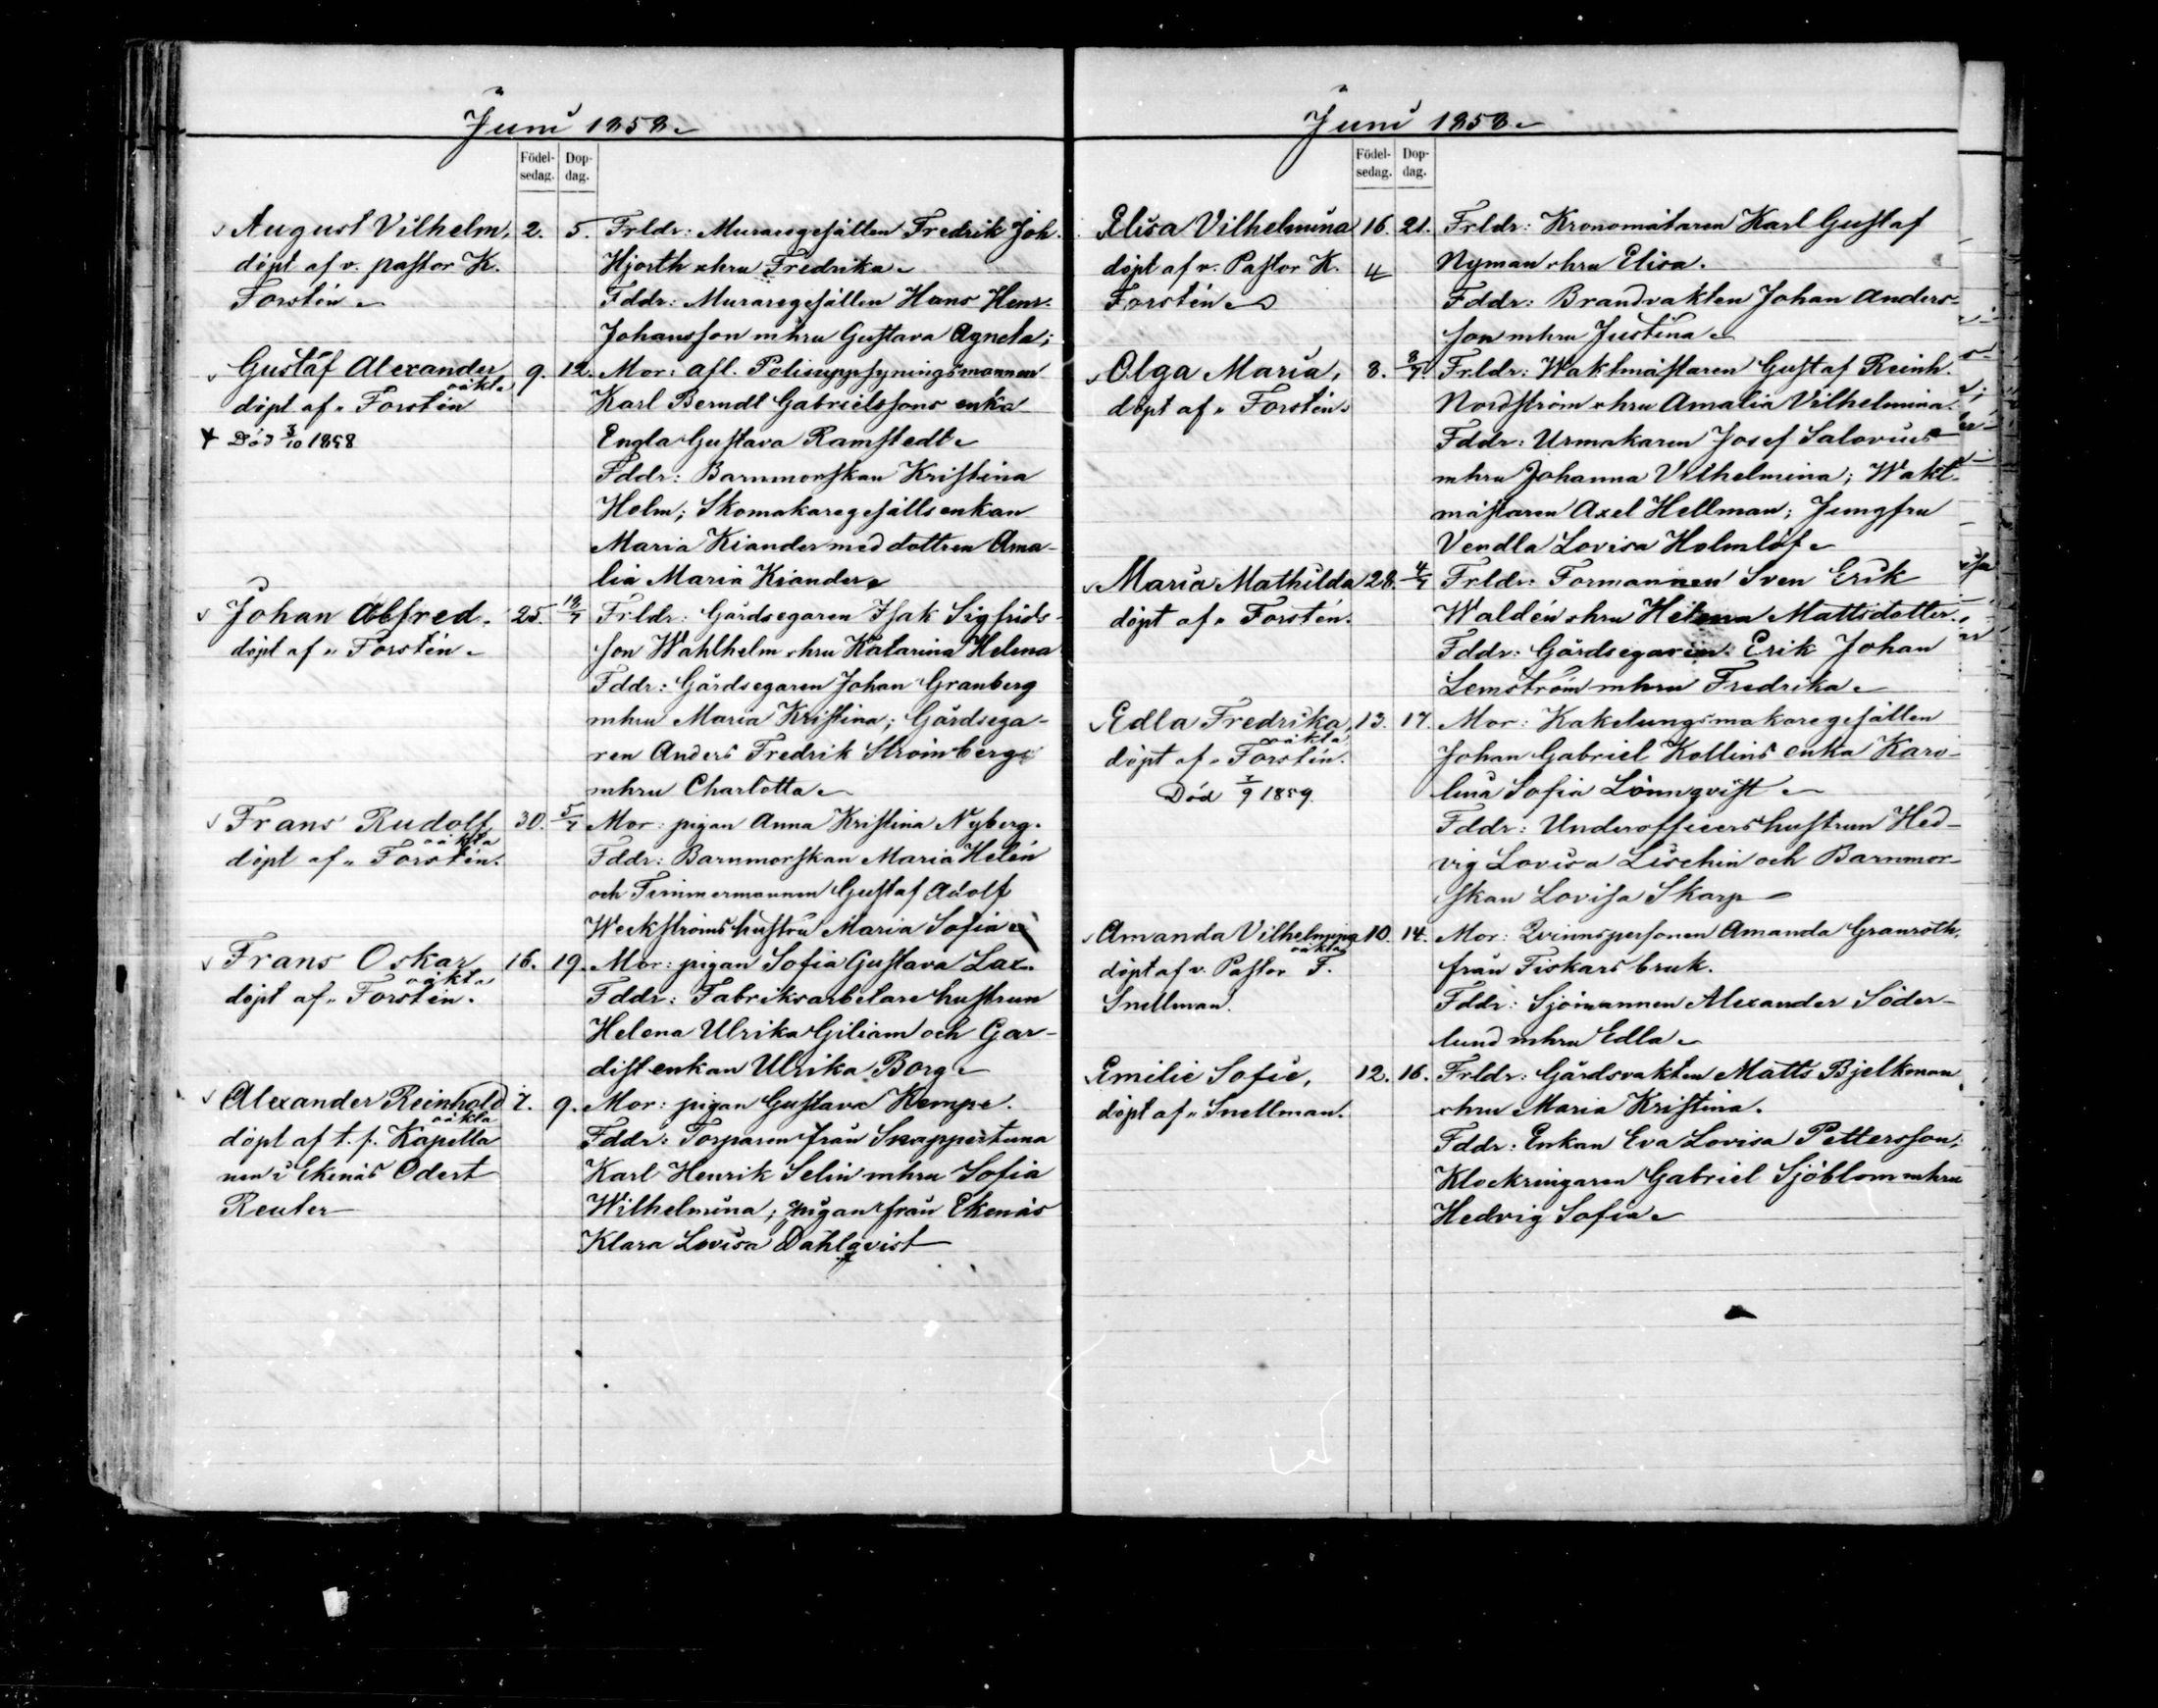 Juni 1858.
Födel-
sedag.
Dop-
dag.
August Vilhelm, 2. 5. Frldr: Muraregesällen Fredrik Joh.
döpt af v. pastor K. Hjorth o hru Fredrika.
Forstén. Fddr: Muraregesällen Hans Henr.
Johansson m hru Gustava Agneta;
Gustaf Alexander 9. 12. Mor: afl. Polisuppsyningsmannen
oäkta
döpt af " Forstén Karl Berndt Gabrielssons enka
Död 3/10 1858 Engla Gustava Ramstedt.
Fddr: Barnmorskan Kristina
Holm; Skomakaregesällsenkan
Maria Kiander med dottren Ama-
lia Maria Kiander.
Johan Alfred. 25. 18/7 Frldr: Gårdsegaren Isak Sigfrids-
döpt af " Forstén. son Wahlhelm o hru Katarina Helena
Fddr: Gårdsegaren Johan Granberg
m hru Maria Kristina; Gårdsega-
ren Anders Fredrik Strömberg
m hru Charlotta.
Frans Rudolf 30. 5/7 Mor: pigan Anna Kristina Nyberg.
oäkta
döpt af " Forstén. Fddr: Barnmorskan Maria Helén
och Timmermannen Gustaf Adolf
Weckströms hustru Maria Sofia.
Frans Oskar 16. 19. Mor: pigan Sofia Gustava Lax.
oäkta
döpt af " Forstén. Fddr: Fabriksarbetare hustrun
Helena Ulrika Giliam och Gar-
distenkan Ulrika Borg.
Alexander Reinhold 7. 9. Mor: pigan Gustava Kempe.
oäkta
döpt af t. f. Kapella Fddr: Torparen från Snappertuna
nen i Ekenäs Odert Karl Henrik Selin m hru Sofia
Reuter Wilhelmina; pigan från Ekenäs
Klara Lovisa Dahlqvist
Juni 1858.
Födel-
sedag.
Dop-
dag.
Elisa Vilhelmina 16. 21. Frldr: Kronomätaren Karl Gustaf
döpt af v. Pastor K. 4 Nyman o hru Elisa.
Forstén. Fddr: Brandvakten Johan Anders-
son m hru Justina.
Olga Maria, 8. 8/7. Frldr: Waktmästaren Gustaf Reinh.
döpt af " Forstén. Nordström o hru Amalia Vilhelmina.
Fddr: Urmakaren Josef Salovius
m hru Johanna Vilhelmina; Wakt-
mästaren Axel Hellman; Jungfru
Vendla Lovisa Holmlöf.
Maria Mathilda 28. 4/7 Frldr: Formannen Sven Erik
döpt af " Forstén. Waldén o hru Helena Mattsdotter.
Fddr: Gårdsegaren Erik Johan
Lemström m hru Fredrika.
Edla Fredrika, 13. 17. Mor: Kakelungsmakaregesällen
oäkta
döpt af " Forstén. Johan Gabriel Kollins enka Karo-
Död 7/9 1859. lina Sofia Lönnqvist.
Fddr: Underofficers hustrun Hed-
vig Lovisa Lischin och Barnmor-
skan Lovisa Skarp
Amanda Vilhelmina 10. 14. Mor: Qvinnspersonen Amanda Granroth,
oäkta
döpt af v. Pastor F. från Fiskars bruk.
Snellman. Fddr: Sjömannen Alexander Söder-
lund m hru Edla.
Emilie Sofie, 12. 16. Frldr: Gårdsvakten Matts Bjelkman
döpt af " Snellman. o hru Maria Kristina.
Fddr: Enkan Eva Lovisa Pettersson;
Klockringaren Gabriel Sjöblom m hru
Hedvig Sofia.